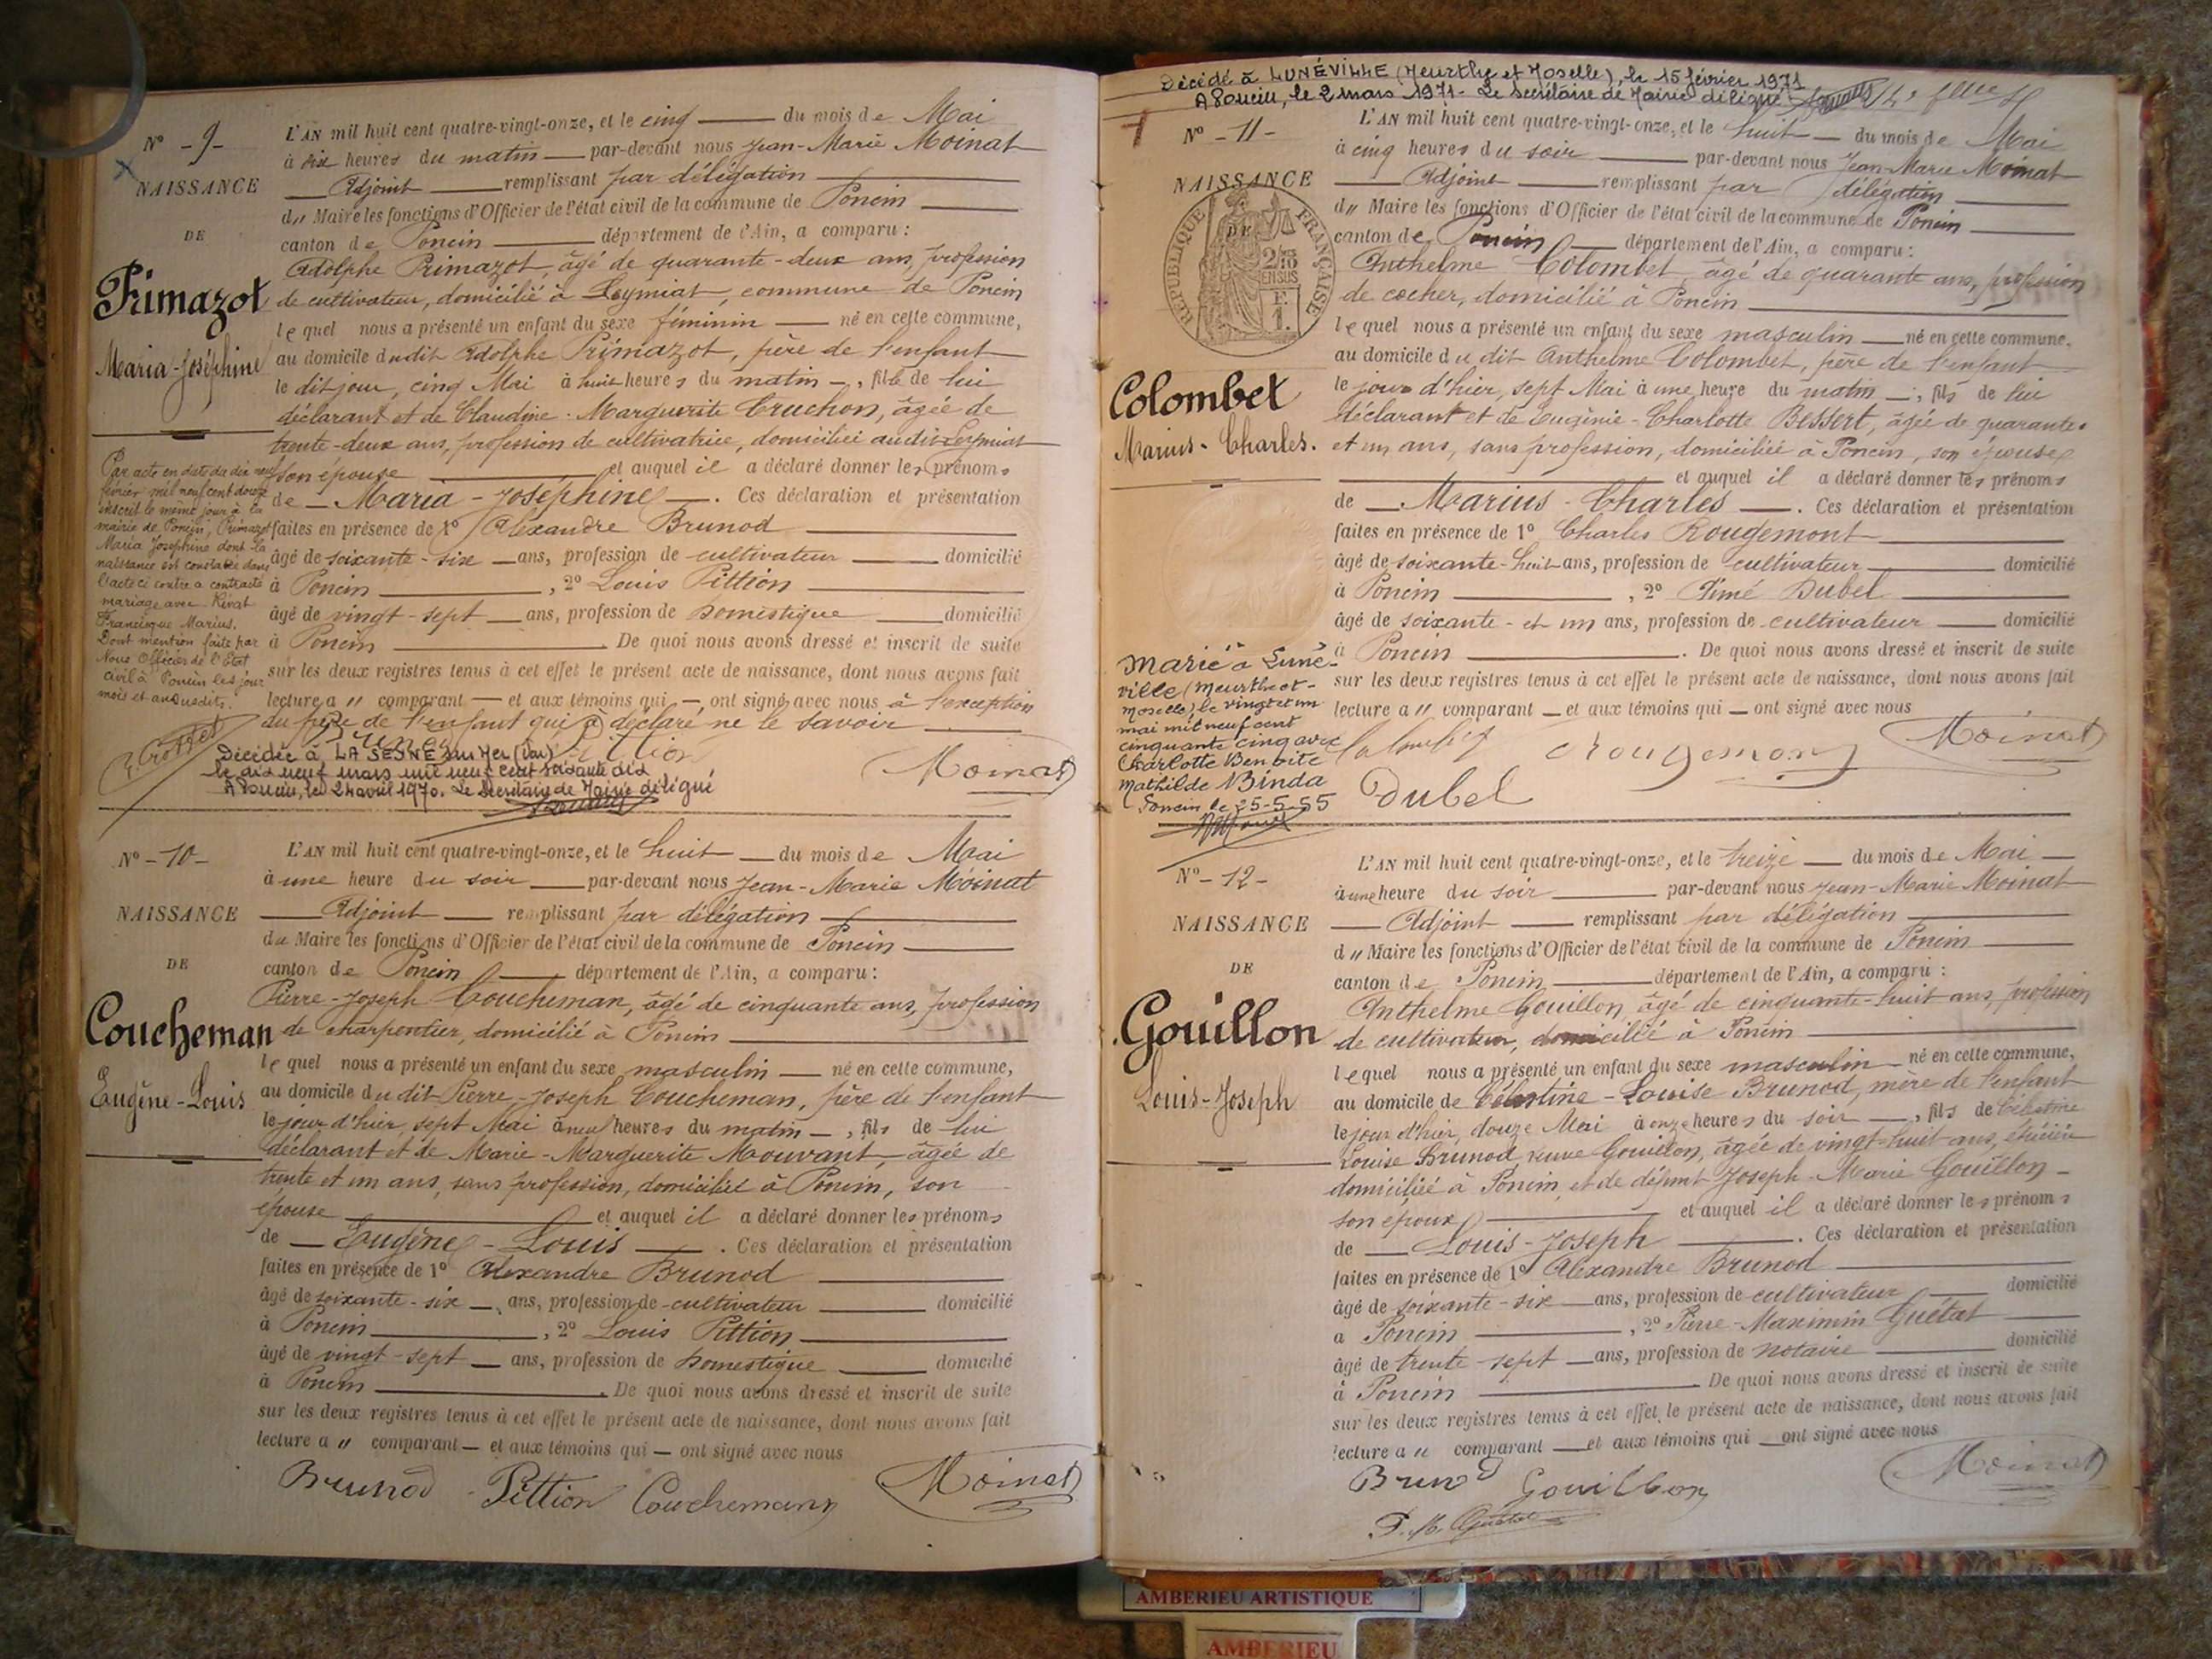 N° - 9 -
NAISSANCE
DE
Primazot
Maria-Joséphine
L'AN mil huit cent quatre-vingt-onze, et le cinq du mois de Mai
à dix heures du matin par-devant nous Jean-Marie Moinat
Adjoint remplissant par délégation
du Maire les fonctions d'Officier de l'état civil de la commune de Poncin
canton de Poncin département de l'Ain, a comparu :
Adolphe Primazot, âgé de quarante-deux ans, profession
de cultivateur, domicilié à Leymiat, commune de Poncin
lequel nous a présenté un enfant du sexe féminin né en cette commune,
au domicile dudit Adolphe Primazot, père de l'enfant
le dit jour, cinq Mai à huit heures du matin, fille de lui
déclarant et de Claudine-Marguerite Cruchon, âgée de
trente-deux ans, profession de cultivatrice, domiciliée audit Leymiat
son épouse et auquel il a déclaré donner les prénoms
de Maria-Joséphine. Ces déclaration et présentation
faites en présence de 1° Alexandre Brunod
âgé de soixante-six ans, profession de cultivateur domicilié
à Poncin, 2° Louis Pittion
âgé de vingt-sept ans, profession de domestique domicilié
à Poncin. De quoi nous avons dressé et inscrit de suite
sur les deux registres tenus à cet effet le présent acte de naissance, dont nous avons fait
lecture a u comparant et aux témoins qui ont signé avec nous à l'exception
du père de l'enfant qui a déclaré ne le savoir
Par acte en date du dix neuf
février mil neuf cent douze
inscrit le même jour à la
mairie de Poncin, Primazot
Maria Josephine dont la
naissance est constatée dans
l'acte ci contre a contracté
mariage avec Rivat
Francisque Marius.
Dont mention faite par
Nous Officier de l'Etat
civil à Poncin les jour
mois et an susdits.
Décédée à LA SEYNE sur Mer (Var)
le dix neuf mars mil neuf cent soixante dix
A Poncin, le 24 avril 1970. Le Secrétaire de Mairie délégué
Moinat
N° - 10 -
NAISSANCE
DE
Coucheman
Eugène-Louis
L'AN mil huit cent quatre-vingt-onze, et le huit du mois de Mai
à une heure du soir par-devant nous Jean-Marie Moinat
Adjoint remplissant par délégation
du Maire les fonctions d'Officier de l'état civil de la commune de Poncin
canton de Poncin département de l'Ain, a comparu :
Pierre-Joseph Coucheman, âgé de cinquante ans, profession
de charpentier, domicilié à Poncin
lequel nous a présenté un enfant du sexe masculin né en cette commune,
au domicile du dit Pierre-Joseph Coucheman, père de l'enfant
le jour d'hier, sept Mai à neuf heures du matin, fils de lui
déclarant et de Marie-Marguerite Mouvant, âgée de
trente et un ans, sans profession, domiciliée à Poncin, son
épouse et auquel il a déclaré donner les prénoms
de Eugène-Louis. Ces déclaration et présentation
faites en présence de 1° Alexandre Brunod
âgé de soixante-six ans, profession de cultivateur domicilié
à Poncin, 2° Louis Pittion
âgé de vingt-sept ans, profession de domestique domicilié
à Poncin. De quoi nous avons dressé et inscrit de suite
sur les deux registres tenus à cet effet le présent acte de naissance, dont nous avons fait
lecture a u comparant et aux témoins qui ont signé avec nous
Brunod Pittion Couchemann Moinat
Décédé à LUNÉVILLE (Meurthe et Moselle), le 15 février 1971
A Poncin, le 2 mars 1971 - Le Secrétaire de Mairie délégué
N° - 11 -
NAISSANCE
DE
REPUBLIQUE FRANÇAISE
2/10 EN SUS
F. 1.
Colombet
Marius-Charles.
L'AN mil huit cent quatre-vingt-onze, et le huit du mois de Mai
à cinq heures du soir par-devant nous Jean-Marie Moinat
Adjoint remplissant par délégation
du Maire les fonctions d'Officier de l'état civil de la commune de Poncin
canton de Poncin département de l'Ain, a comparu :
Anthelme Colombet, âgé de quarante ans, profession
de cocher, domicilié à Poncin
lequel nous a présenté un enfant du sexe masculin né en cette commune,
au domicile du dit Anthelme Colombet, père de l'enfant
le jour d'hier, sept Mai à une heure du matin, fils de lui
déclarant et de Eugénie-Charlotte Bessert, âgée de quarante
et un ans, sans profession, domiciliée à Poncin, son épouse
et auquel il a déclaré donner les prénoms
de Marius-Charles. Ces déclaration et présentation
faites en présence de 1° Charles Rougemont
âgé de soixante-huit ans, profession de cultivateur domicilié
à Poncin, 2° Aimé Dubel
âgé de soixante-et un ans, profession de cultivateur domicilié
à Poncin. De quoi nous avons dressé et inscrit de suite
sur les deux registres tenus à cet effet le présent acte de naissance, dont nous avons fait
lecture a u comparant et aux témoins qui ont signé avec nous
Marié à Luné-
ville (Meurthe et-
Moselle) le vingt et un
mai mil neuf cent
cinquante cinq avec
Charlotte Benoîte
Mathilde Binda
Poncin le 25-5-55
Rougemont Moinat
Dubel
N° - 12 -
NAISSANCE
DE
Gouillon
Louis-Joseph
L'AN mil huit cent quatre-vingt-onze, et le treize du mois de Mai
à une heure du soir par-devant nous Jean-Marie Moinat
Adjoint remplissant par délégation
du Maire les fonctions d'Officier de l'état civil de la commune de Poncin
canton de Poncin département de l'Ain, a comparu :
Anthelme Gouillon, âgé de cinquante-huit ans, profession
de cultivateur, domicilié à Poncin
lequel nous a présenté un enfant du sexe masculin né en cette commune,
au domicile de Célestine-Louise Brunod, mère de l'enfant
le jour d'hier, douze Mai à onze heures du soir, fils de Célestine
Louise Brunod, veuve Gouillon, âgée de vingt-huit ans, épicière
domiciliée à Poncin, et de défunt Joseph-Marie Gouillon
son époux et auquel il a déclaré donner les prénoms
de Louis-Joseph. Ces déclaration et présentation
faites en présence de 1° Alexandre Brunod
âgé de soixante-six ans, profession de cultivateur domicilié
à Poncin, 2° Pierre-Maximin Guétat
âgé de trente-sept ans, profession de notaire domicilié
à Poncin De quoi nous avons dressé et inscrit de suite
sur les deux registres tenus à cet effet le présent acte de naissance, dont nous avons fait
lecture a u comparant et aux témoins qui ont signé avec nous
Brunod Gouillon Moinat
P. M. Guétat
AMBERIEU ARTISTIQUE
AMBERIEU